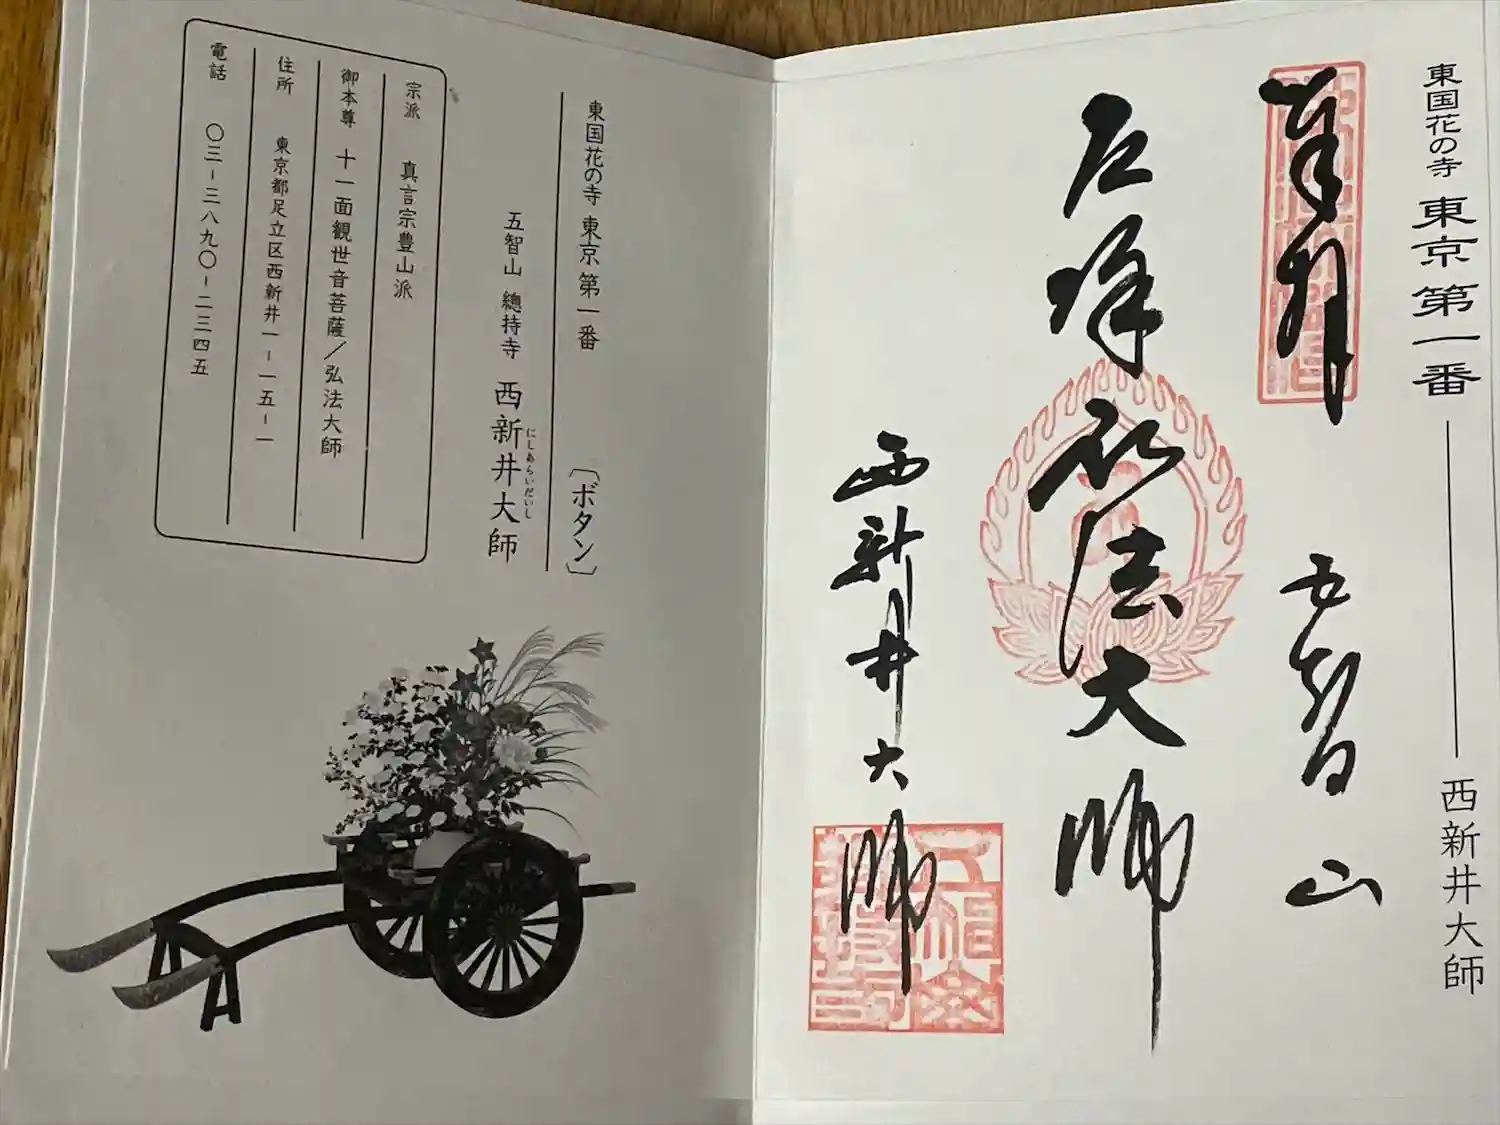 東国花の寺 東京第一番 ― 西新井大師
奉拝
五智山
厄除 弘法大師
西新井大師
東国花の寺 東京 第一番 〔ボタン〕
にしあらいだいし
五智山 總持寺 西新井大師
宗派 真言宗豊山派
御本尊 十一面観世音菩薩／弘法大師
住所 東京都足立区西新井一-一五-一
電話 〇三-三八九〇-二三四五